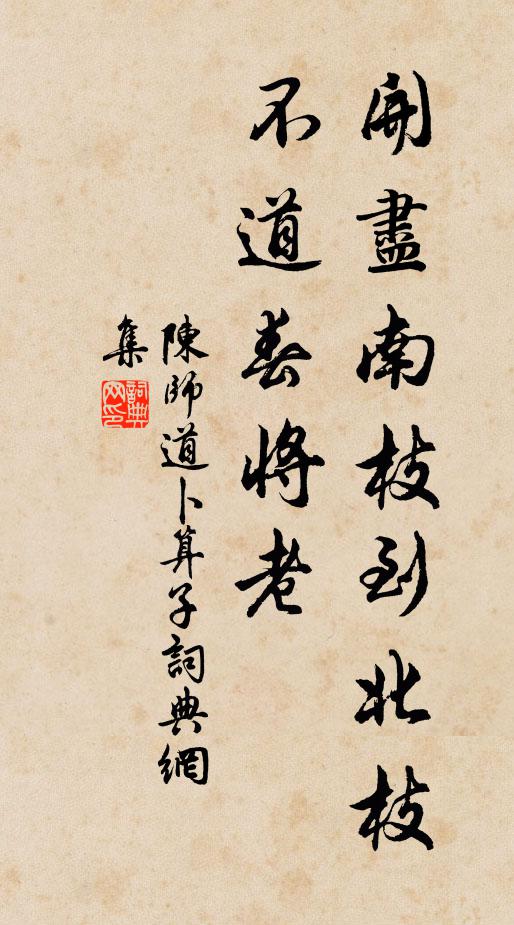 開盡南枝到北枝
不道春將老
陳師道卜算子詞典網
集
詞典網印